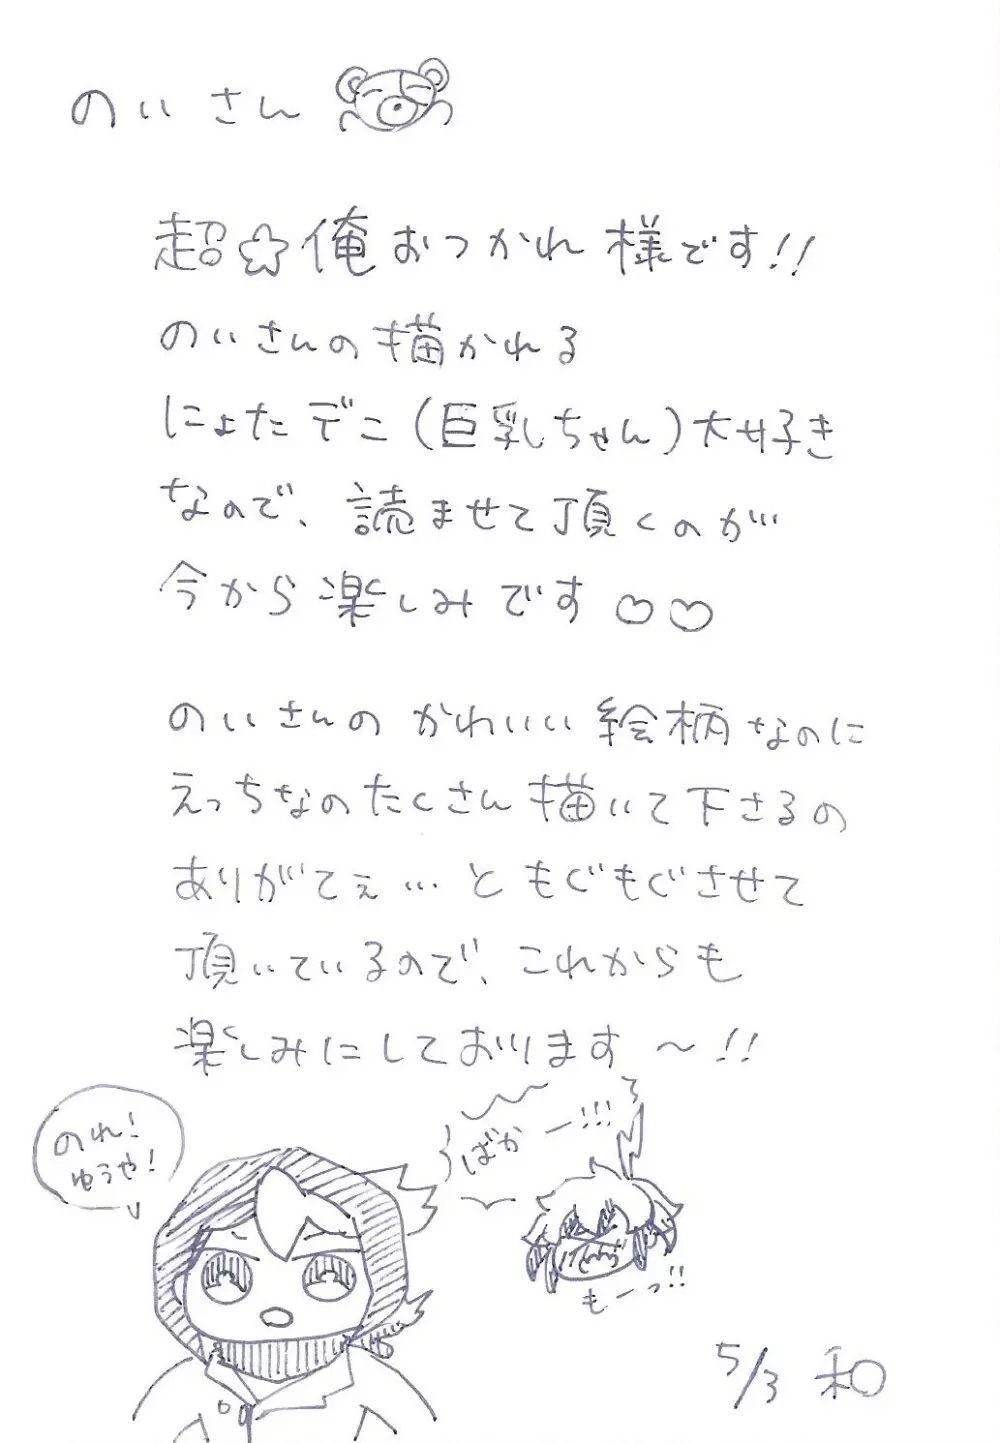 のいさん
超☆俺おつかれ様です!!
のいさんの描かれる
にょたデニ(巨乳しちゃん)大好き
なので、読ませて頂くのが
今から楽しみです♡♡
のいさんのかわいい絵柄なのに
えっちなのたくさん描いて下さるの
ありがてぇ…ともぐもぐさせて
頂いているので、これからも
楽しみにしております〜!!
のれ!
ゆうや!
ばかー!!!
もーっ!!
5/3 和